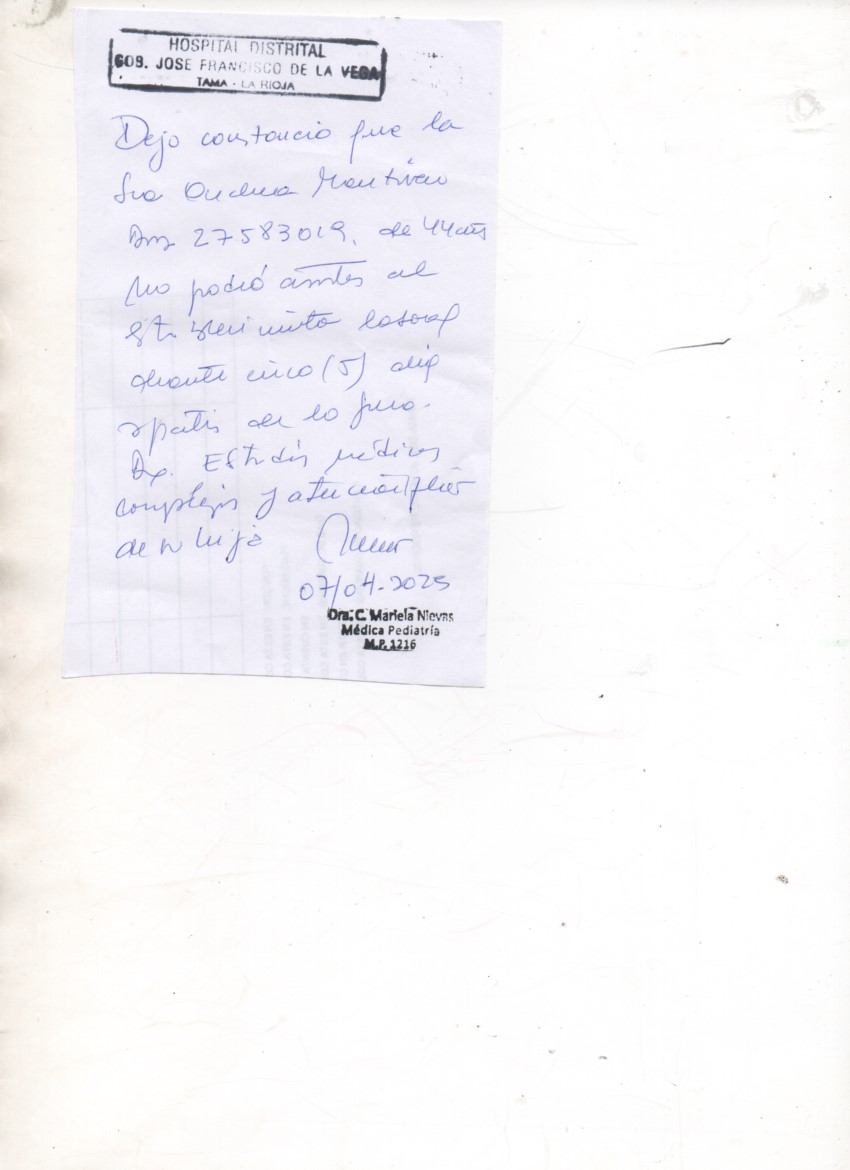 HOSPITAL DISTRITAL
GOB. JOSE FRANCISCO DE LA VEGA
TAMA - LA RIOJA
Dejo constancia que la
Sra
27583019, de 44 años
no podrá asistir al
establecimiento laboral
durante cinco (5) días
a partir de la fecha.
Dx. Estudios médicos
complejos y atención
de su hija
07/04-2025
Dra. C. Mariela Nievas
Médica Pediatría
M.P. 1216